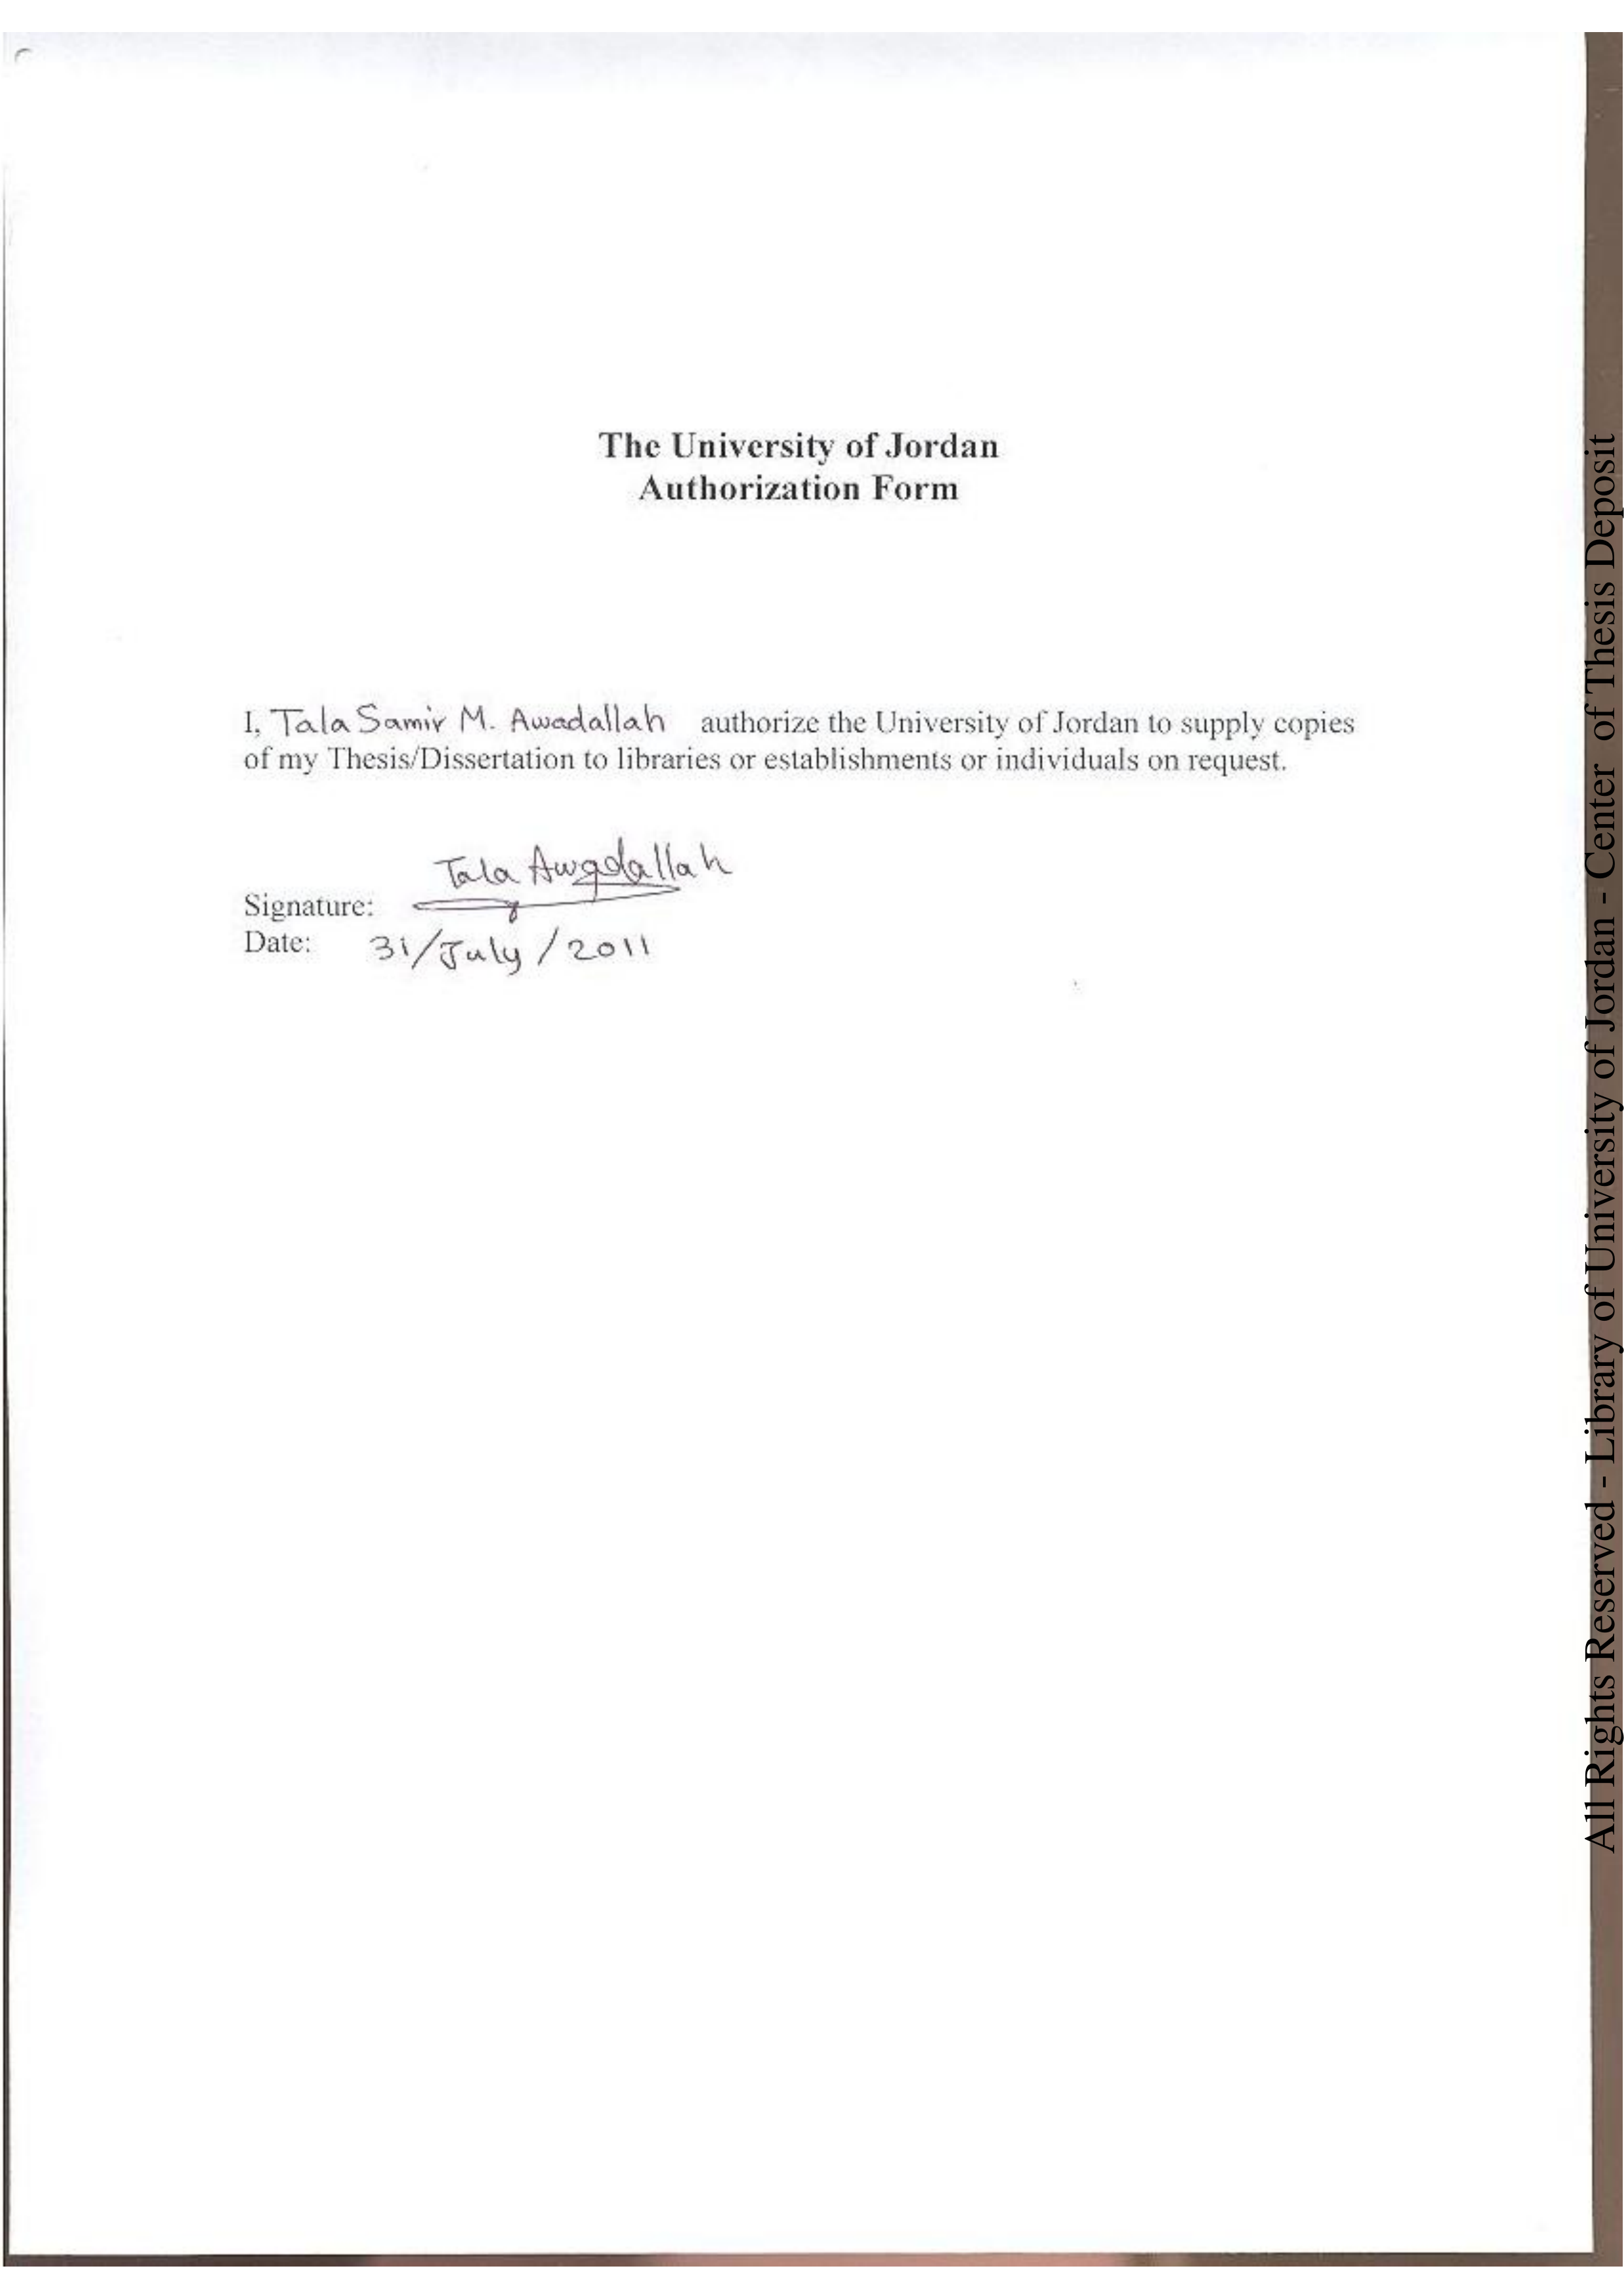 The University of Jordan
Authorization Form
I, Tala Samir M. Awadallah authorize the University of Jordan to supply copies
of my Thesis/Dissertation to libraries or establishments or individuals on request.
Tala Awadallah
Signature:
Date: 31/July/2011
All Rights Reserved - Library of University of Jordan - Center of Thesis Deposit